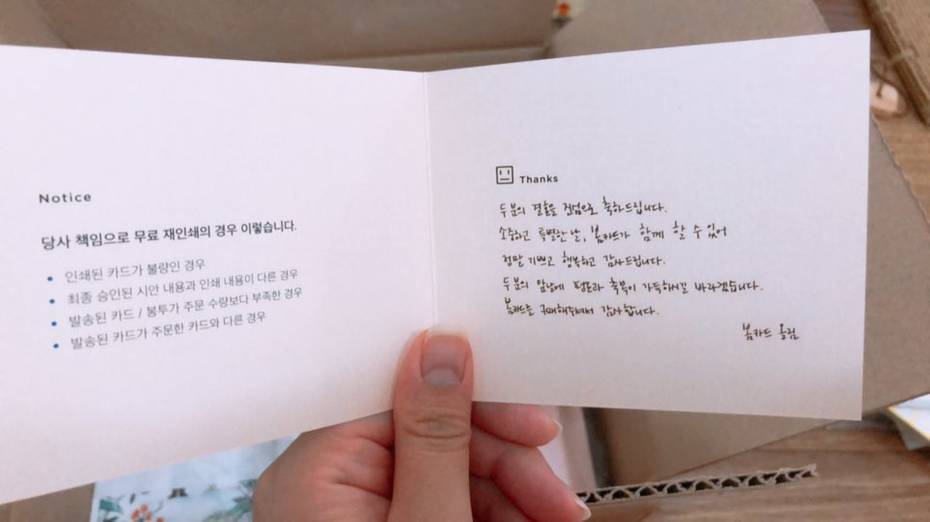 Notice
당사 책임으로 무료 재인쇄의 경우 이렇습니다.
• 인쇄된 카드가 불량인 경우
• 최종 승인된 시안 내용과 인쇄 내용이 다른 경우
• 발송된 카드 / 봉투가 주문 수량보다 부족한 경우
• 발송된 카드가 주문한 카드와 다른 경우
Thanks
두 분의 결혼을 진심으로 축하드립니다.
소중하고 특별한 날, 봄카드가 함께 할 수 있어
정말 기쁘고 행복하고 감사드립니다.
두 분의 앞날에 평온과 축복이 가득하시길 바라겠습니다.
봄카드를 구매해주셔서 감사합니다.
봄카드 올림